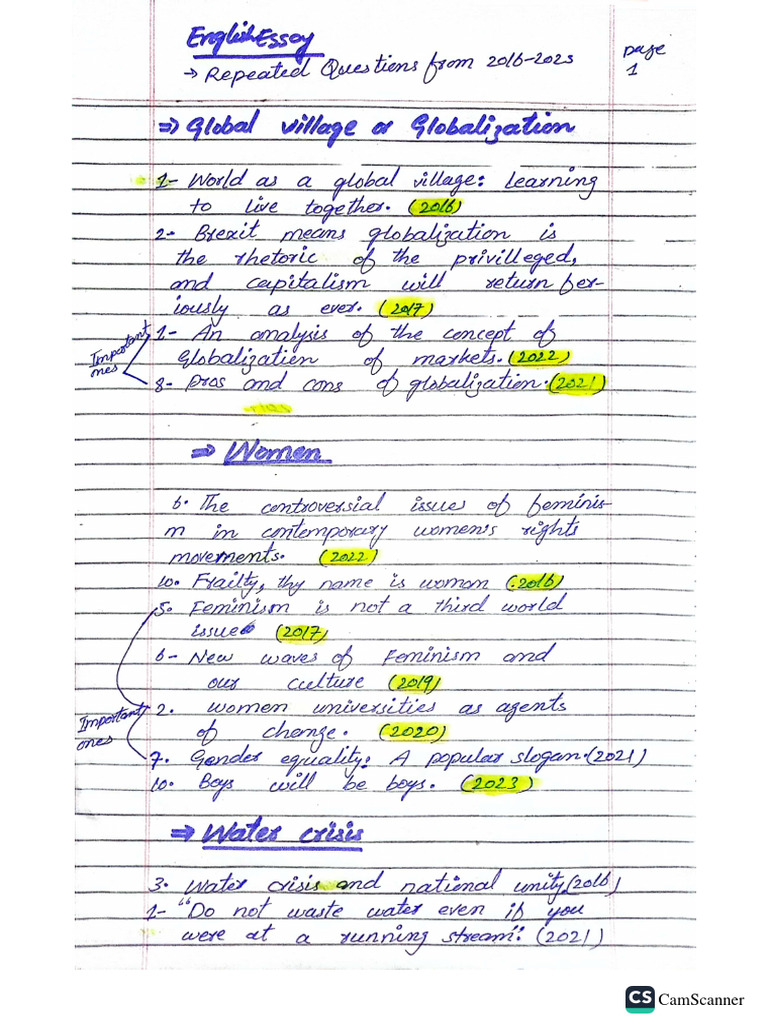 English Essay
→ Repeated Questions from 2016-2023
page
1
⇒ Global village or Globalization
1- World as a global village: learning
to live together. (2016)
2- Brexit means globalization is
the rhetoric of the privilleged,
and capitalism will return fer-
iously as ever. (2017)
Important
ones
1- An analysis of the concept of
Globalization of markets. (2022)
8- Pros and cons of globalization. (2021)
⇒ Women
6. The controversial issues of feminis-
m in contemporary women's rights
movements. (2022)
10. Frailty, thy name is woman (2016)
5. Feminism is not a third world
issue (2017)
6- New waves of Feminism and
our culture (2019)
Important
ones
2. women universities as agents
of change. (2020)
7. Gender equality: A popular slogan. (2021)
10. Boys will be boys. (2023)
⇒ Water crisis
3. Water crisis and national unity (2016)
1- "Do not waste water even if you
were at a running stream: (2021)
CS CamScanner